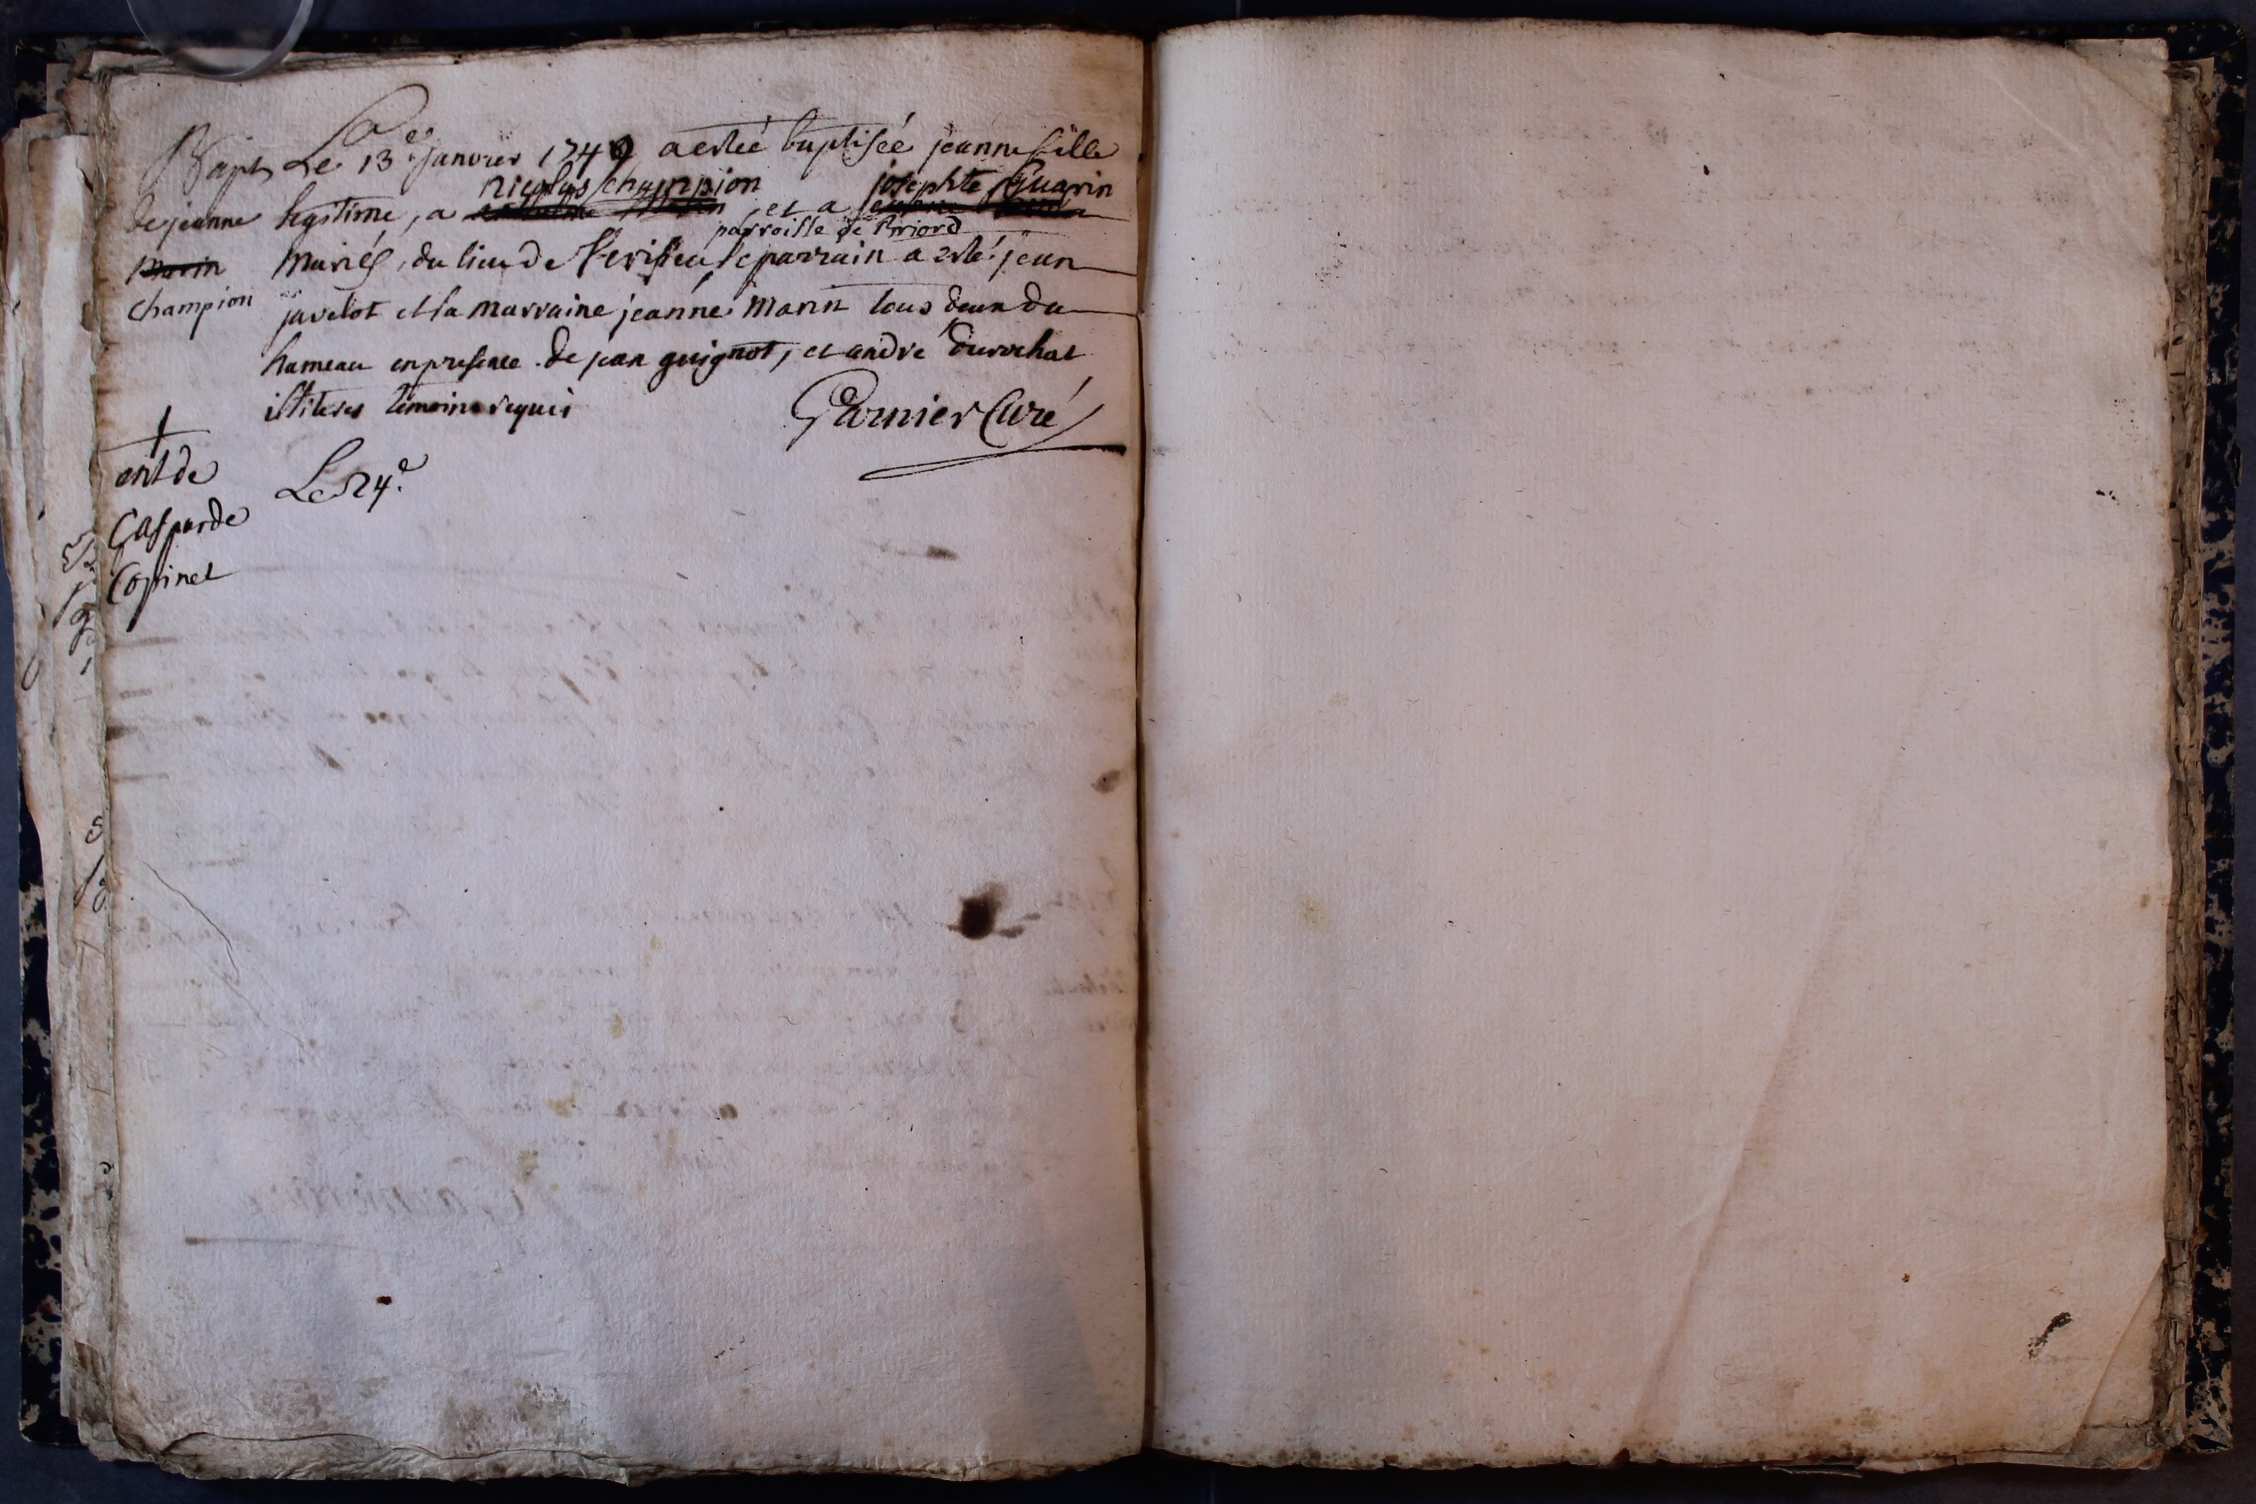 Bapt
de jeanne
Marin
Champion
Le 13e janvier 1749 a estée baptisée jeanne fille
nicolas champion josephte Guarin
legitime, a et a
parroisse de Briord
Mariés, du lieu de Verisieu le parrain a esté jean
javelot et la marraine jeanne Marin tous deux du
hameau en presence de jean guignot, et andré Durochat
illiteres témoins requis
Garnier Curé
ent de
Gasparde
Copinet
Le 24e